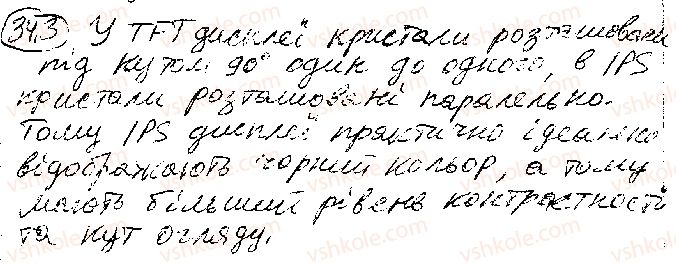 34.3 У TFT дисплеї кристали розташовані
під кутом 90° один до одного, в IPS
кристали розташовані паралельно.
Тому IPS дисплеї практично ідеально
відображають чорний кольор, а тому
мають більший рівень контрастності
та кут огляду.